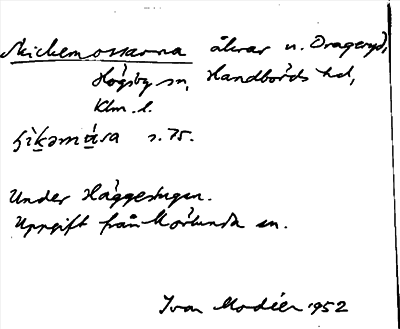 Skickemossarna åkrar u. Drageryd,
Högsby sn, Handbörds hd,
Klm. l.
s. 75.
Under Häggestugan.
Uppgift från Mörlunda sn.
Ivar Modéer 1952